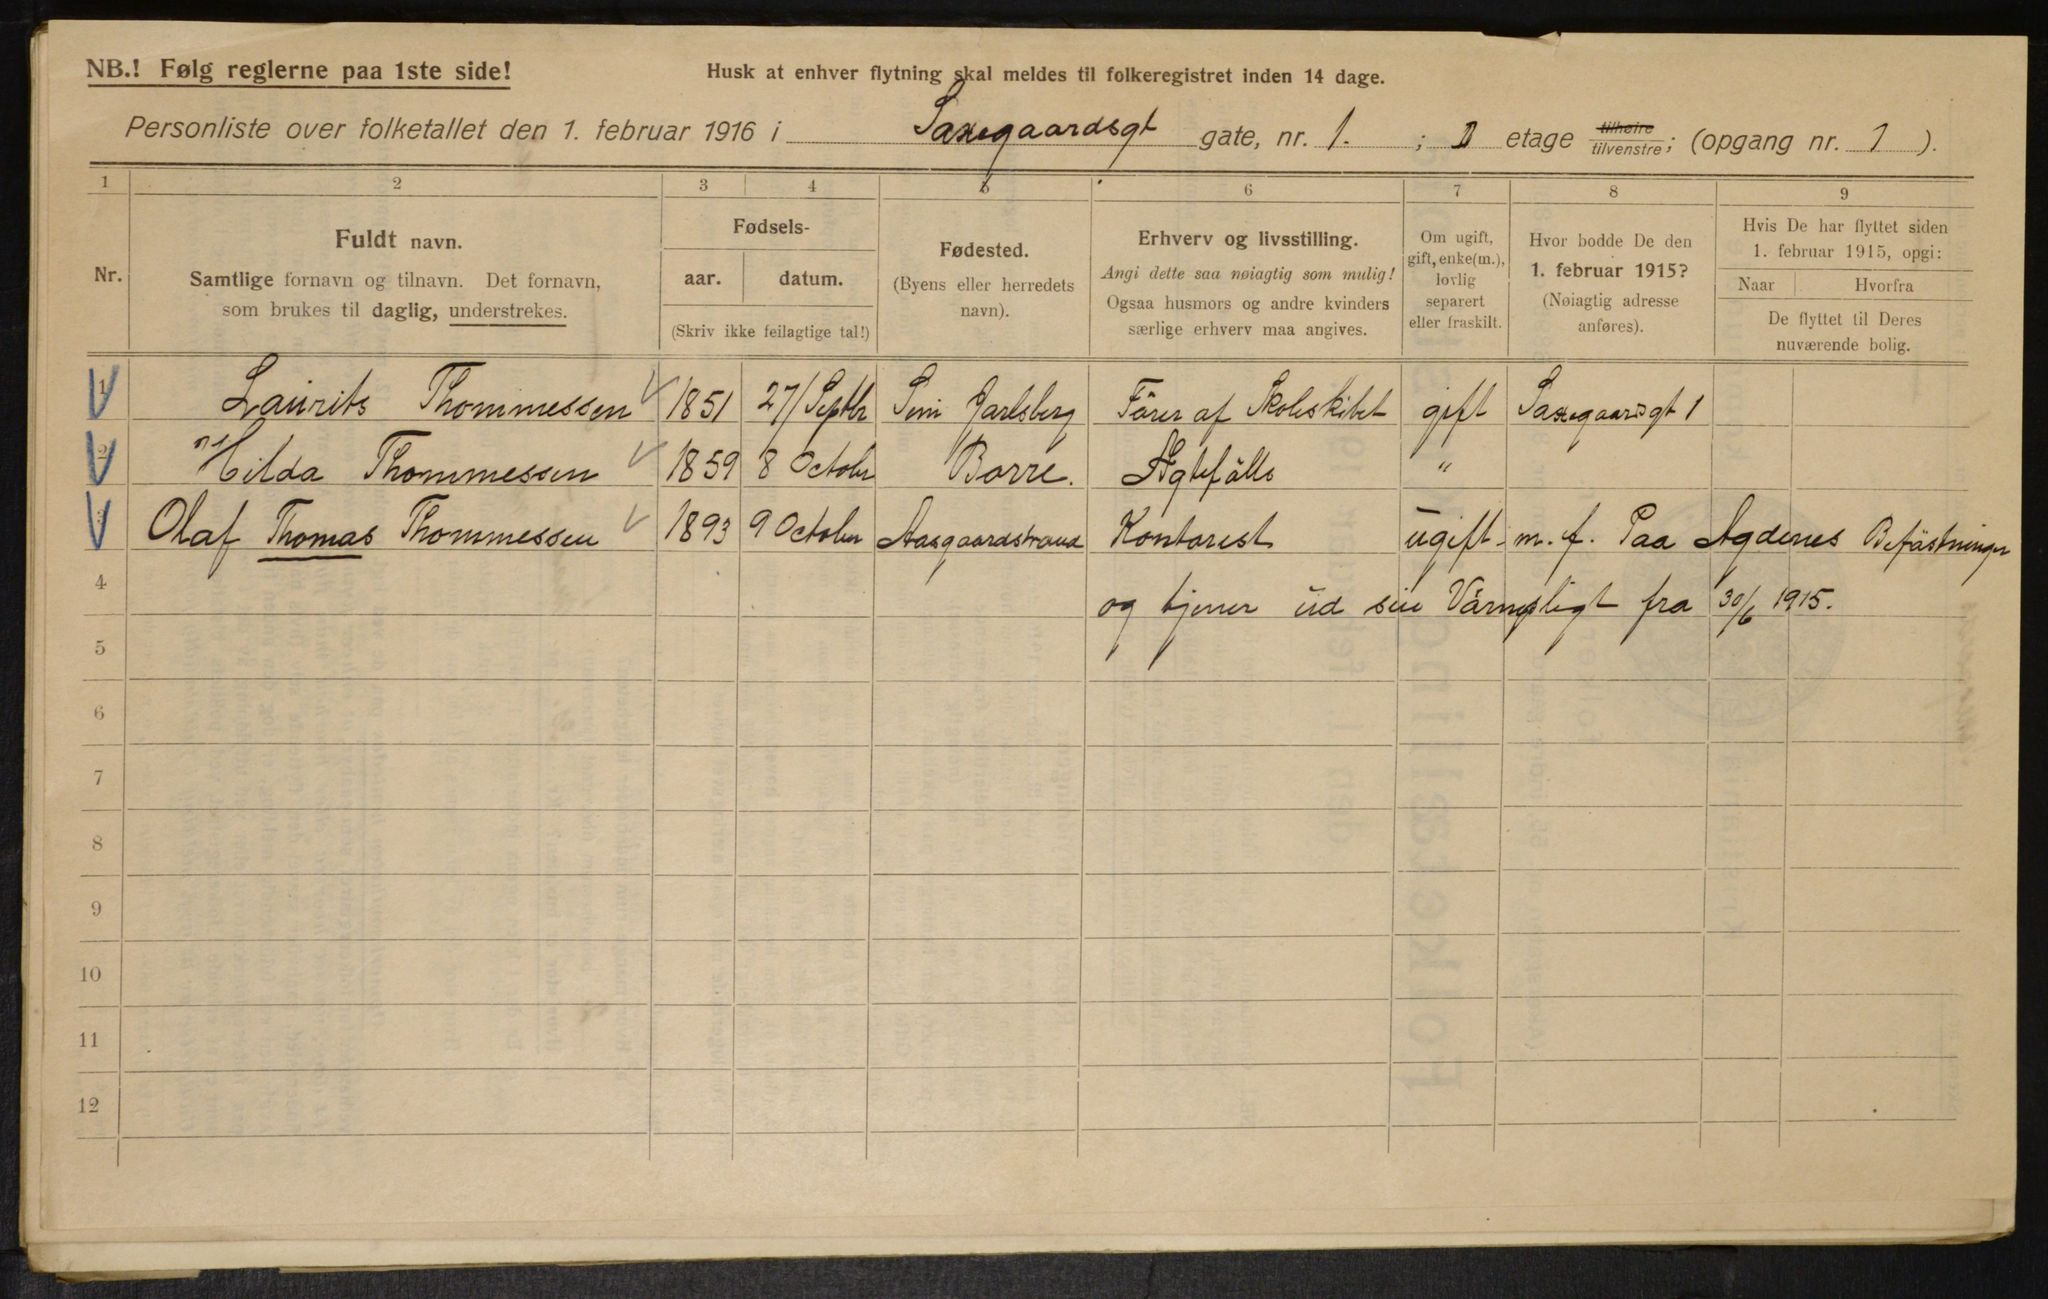 NB.! Følg reglerne paa 1ste side!
Husk at enhver flytning skal meldes til folkeregistret inden 14 dage.
Personliste over folketallet den 1. februar 1916 i Saxegaardsgt gate, nr. 1. ; 1 etage tilhøire tilvenstre; (opgang nr. 1 ).
1 2 3 4 5 6 7 8 9
Nr.
Fuldt navn.
Samtlige fornavn og tilnavn. Det fornavn,
som brukes til daglig, understrekes.
Fødsels-
aar. datum.
(Skriv ikke feilagtige tal!)
Fødested.
(Byens eller herredets
navn).
Erhverv og livsstilling.
Angi dette saa nøiagtig som mulig!
Ogsaa husmors og andre kvinders
særlige erhverv maa angives.
Om ugift,
gift, enke(m.),
lovlig
separert
eller fraskilt.
Hvor bodde De den
1. februar 1915?
(Nøiagtig adresse
anføres).
Hvis De har flyttet siden
1. februar 1915, opgi:
Naar Hvorfra
De flyttet til Deres
nuværende bolig.
1 Laurits Thommessen 1851 27/Septbr Sem Jarlsberg Förer af Skoleskibet gift Saxegaardsgt 1
2 Hilda Thommessen 1859 8 October Borre. Ægtefälle "
3 Olaf Thomas Thommessen 1893 9 October Aasgaardstrand Kontorist ugift m. f. Paa Agdenes Befästninger
4 og tjener ud sin Värnepligt fra 30/6 1915.
5
6
7
8
9
10
11
12